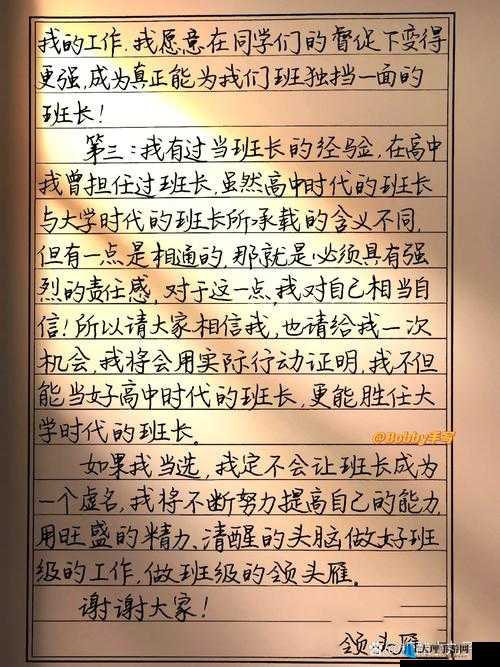 我的工作.我愿意在同学们的督促下变得
更强,成为真正能为我们班独挡一面的
班长!
第三:我有过当班长的经验,在高中
我曾担任过班长,虽然高中时代的班长
与大学时代的班长所承载的含义不同,
但有一点是相通的,那就是必须具有强
烈的责任感,对于这一点,我对自己相当自
信!所以请大家相信我,也请给我一次
机会,我将会用实际行动证明,我不但
能当好高中时代的班长,更能胜任大
学时代的班长。
@Bobby手写
如果我当选,我定不会让班长成为
一个虚名,我将不断努力提高自己的能力,
用旺盛的精力、清醒的头脑做好班
级的工作,做班级的领头雁。
谢谢大家!
领头雁